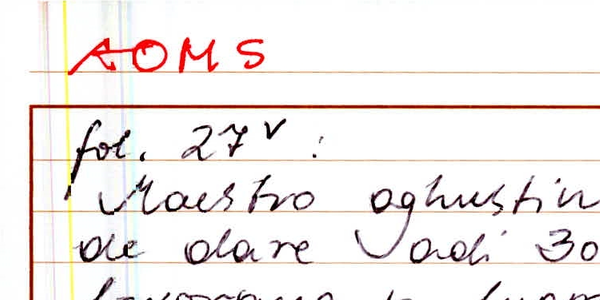 AOMS
fol. 27v :
Maestro aghustin
de dare adi 30